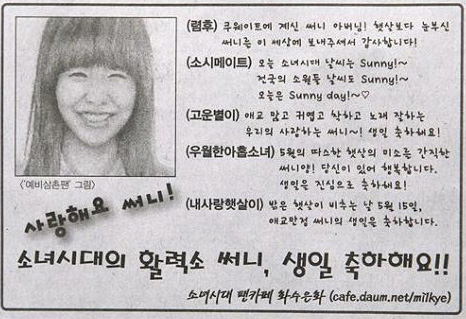 (렴후) 쿠웨이트에 계신 써니 아버님! 햇살보다 눈부신
써니를 이 세상에 보내주셔서 감사합니다!
(소시메이트) 오늘 소녀시대 날씨는 Sunny!~
전국의 소원들 날씨도 Sunny!~
오늘은 Sunny day!~♡
(고운별이) 애교 많고 귀엽고 착하고 노래 잘하는
우리의 사랑하는 써니~! 생일 축하해요!
(우월한아홉소녀) 5월의 따스한 햇살의 미소를 간직한
써니양! 당신이 있어 행복합니다.
생일은 진심으로 축하해요!
(내사랑햇살이) 밝은 햇살이 비추는 날 5월 15일,
애교만점 써니의 생일은 축하합니다.
〈'예비삼촌팬' 그림〉
사랑해요 써니!
소녀시대의 활력소 써니, 생일 축하해요!!
소녀시대 팬카페 화수은화 (cafe.daum.net/milkye)